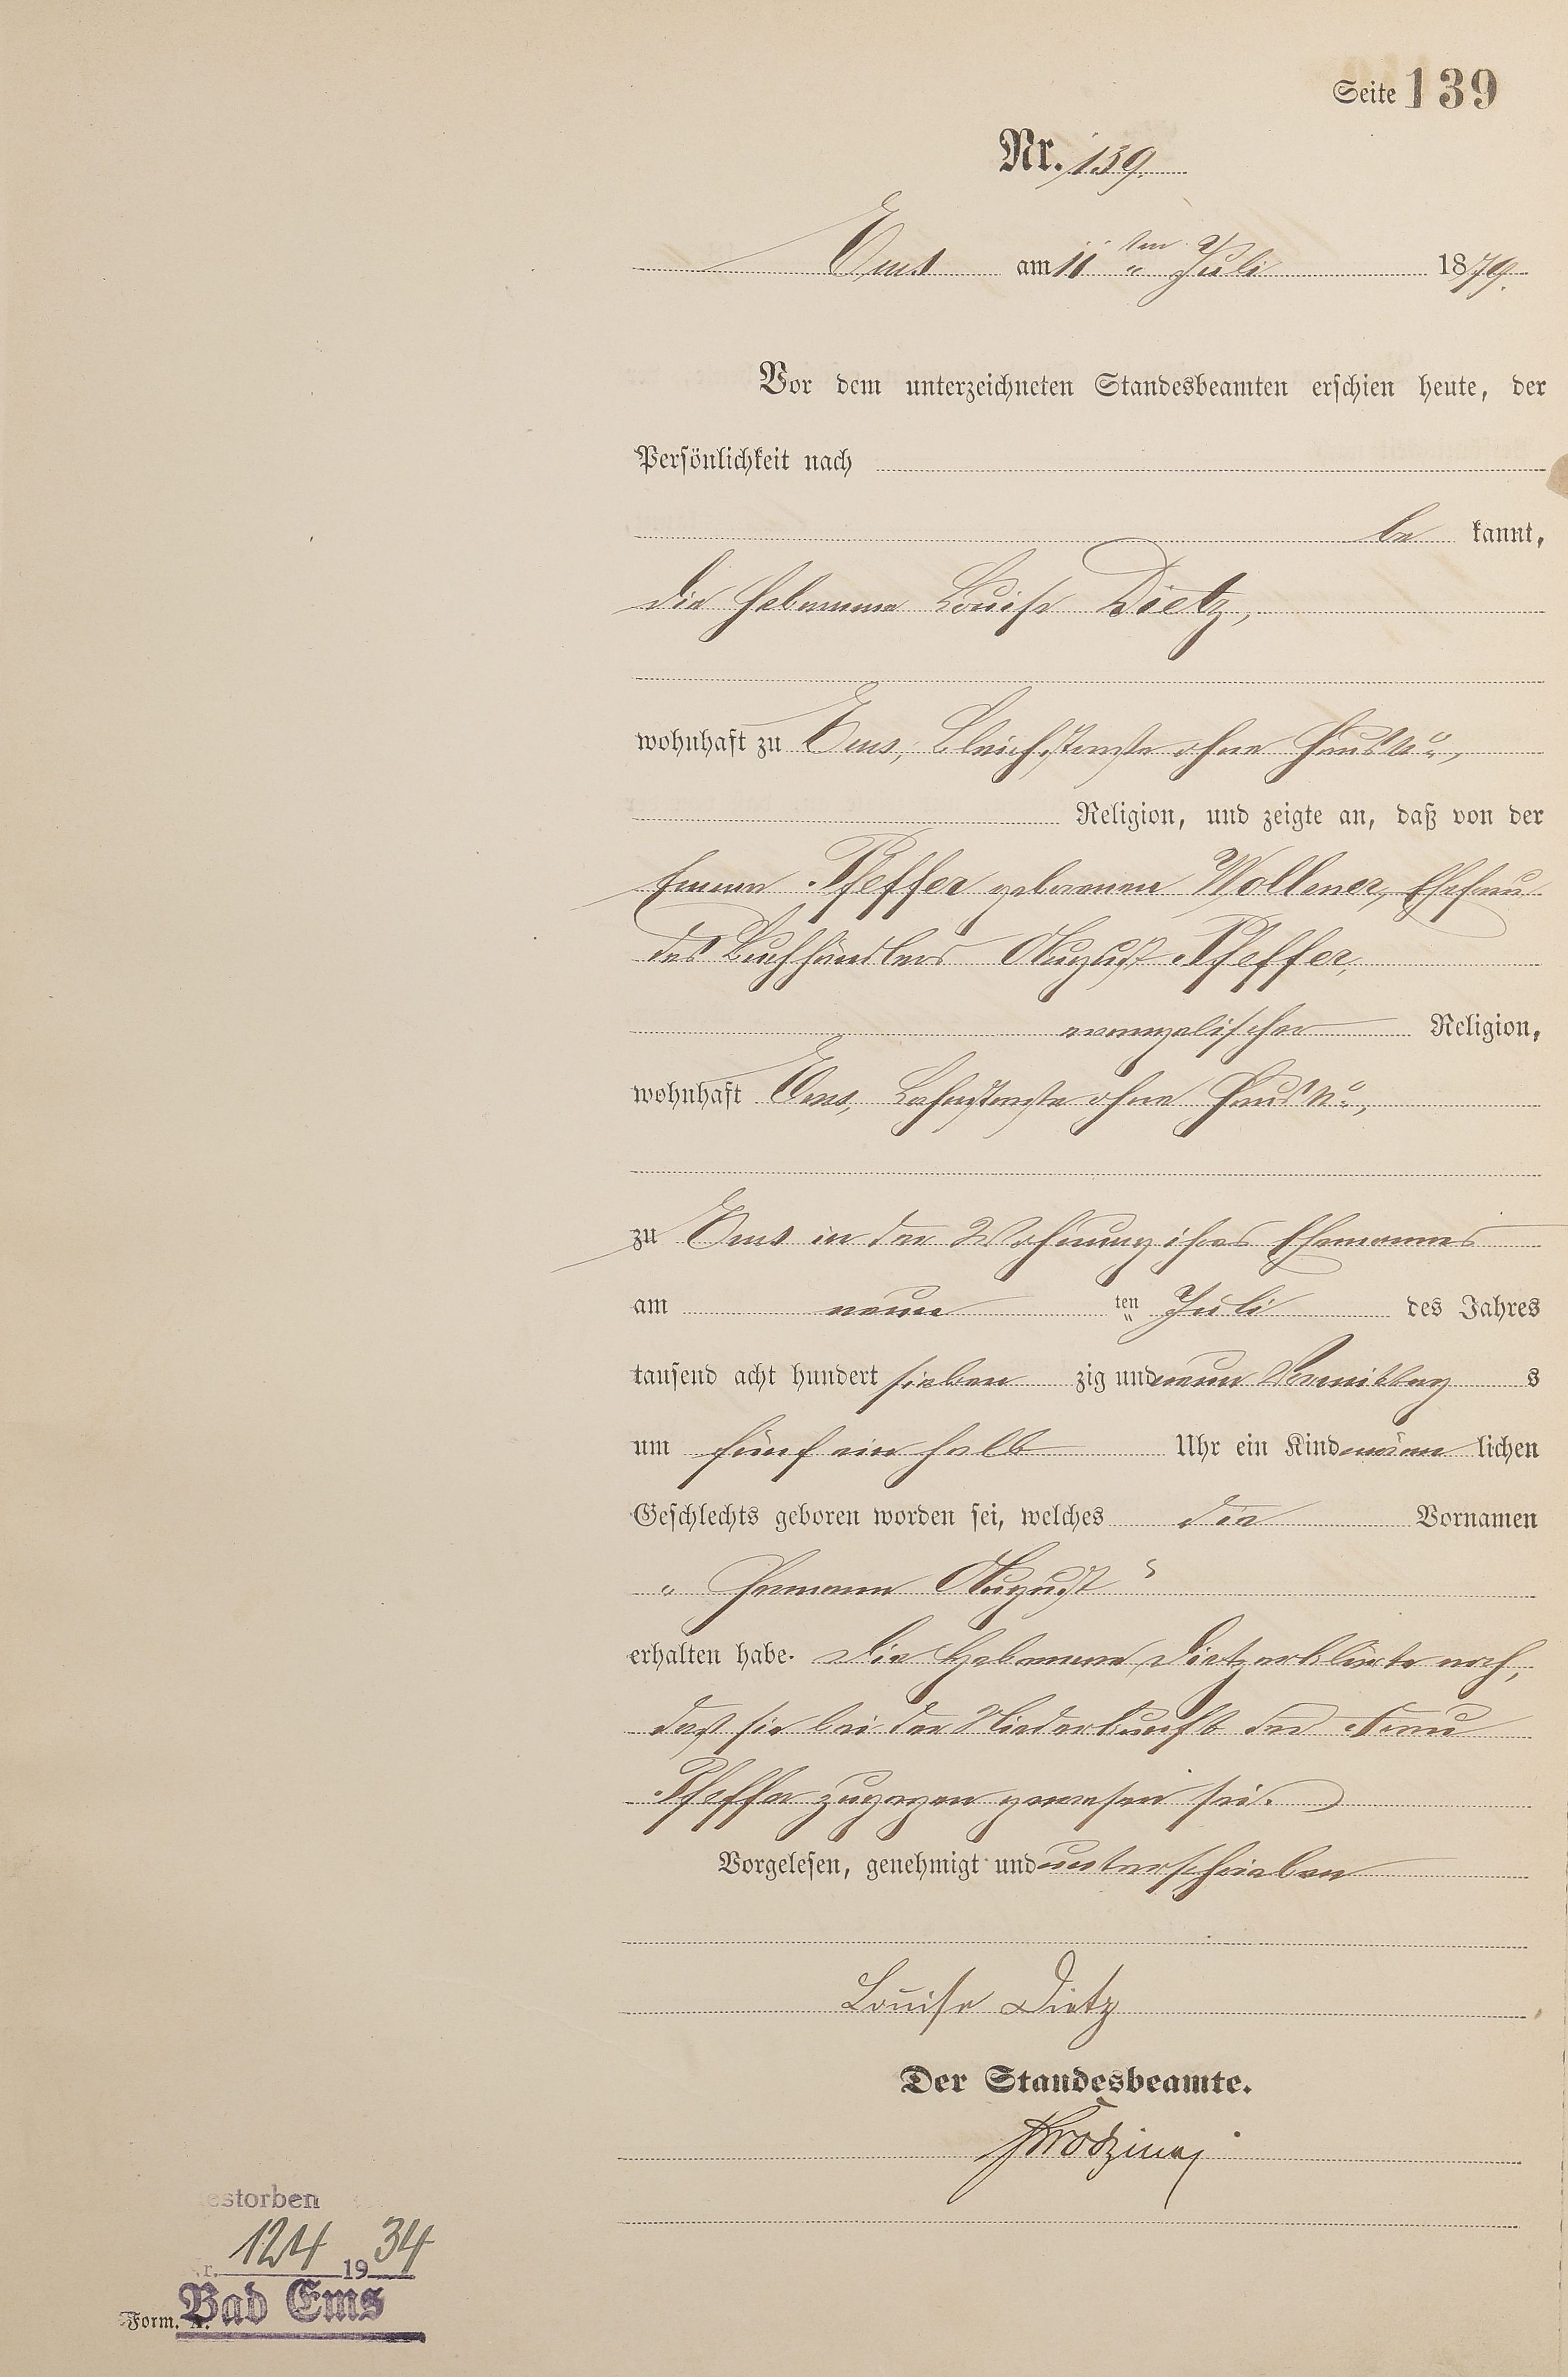 Seite 139
Nr. 139.
Ems am 11 ten Juli 1879.
Vor dem unterzeichneten Standesbeamten erschien heute, der
Persönlichkeit nach
be kannt,
die Hebamme Louise Dietz,
wohnhaft zu Ems, Bleichstraße ohne Haus No,
Religion, und zeigte an, daß von der
Emma Pfeffer geborenen Wollener, Ehefrau
des Buchhändlers August Pfeffer,
evangelischer Religion,
wohnhaft Ems, Lahnstraße ohne Haus No,
zu Ems in der Wohnung ihres Ehemannes
am neun ten Juli des Jahres
tausend acht hundert sieben zig und neun Vormittag s
um fünf ein halb Uhr ein Kind männ lichen
Geschlechts geboren worden sei, welches die Vornamen
„ Hermann August "
erhalten habe. Die Hebamme Dietz erklärte noch,
daß sie bei der Niederkunft der Frau
Pfeffer zugegen gewesen sei.
Vorgelesen, genehmigt und unterschrieben
Louise Dietz
Der Standesbeamte.
estorben
124 1934
Bad Ems
Form. A.